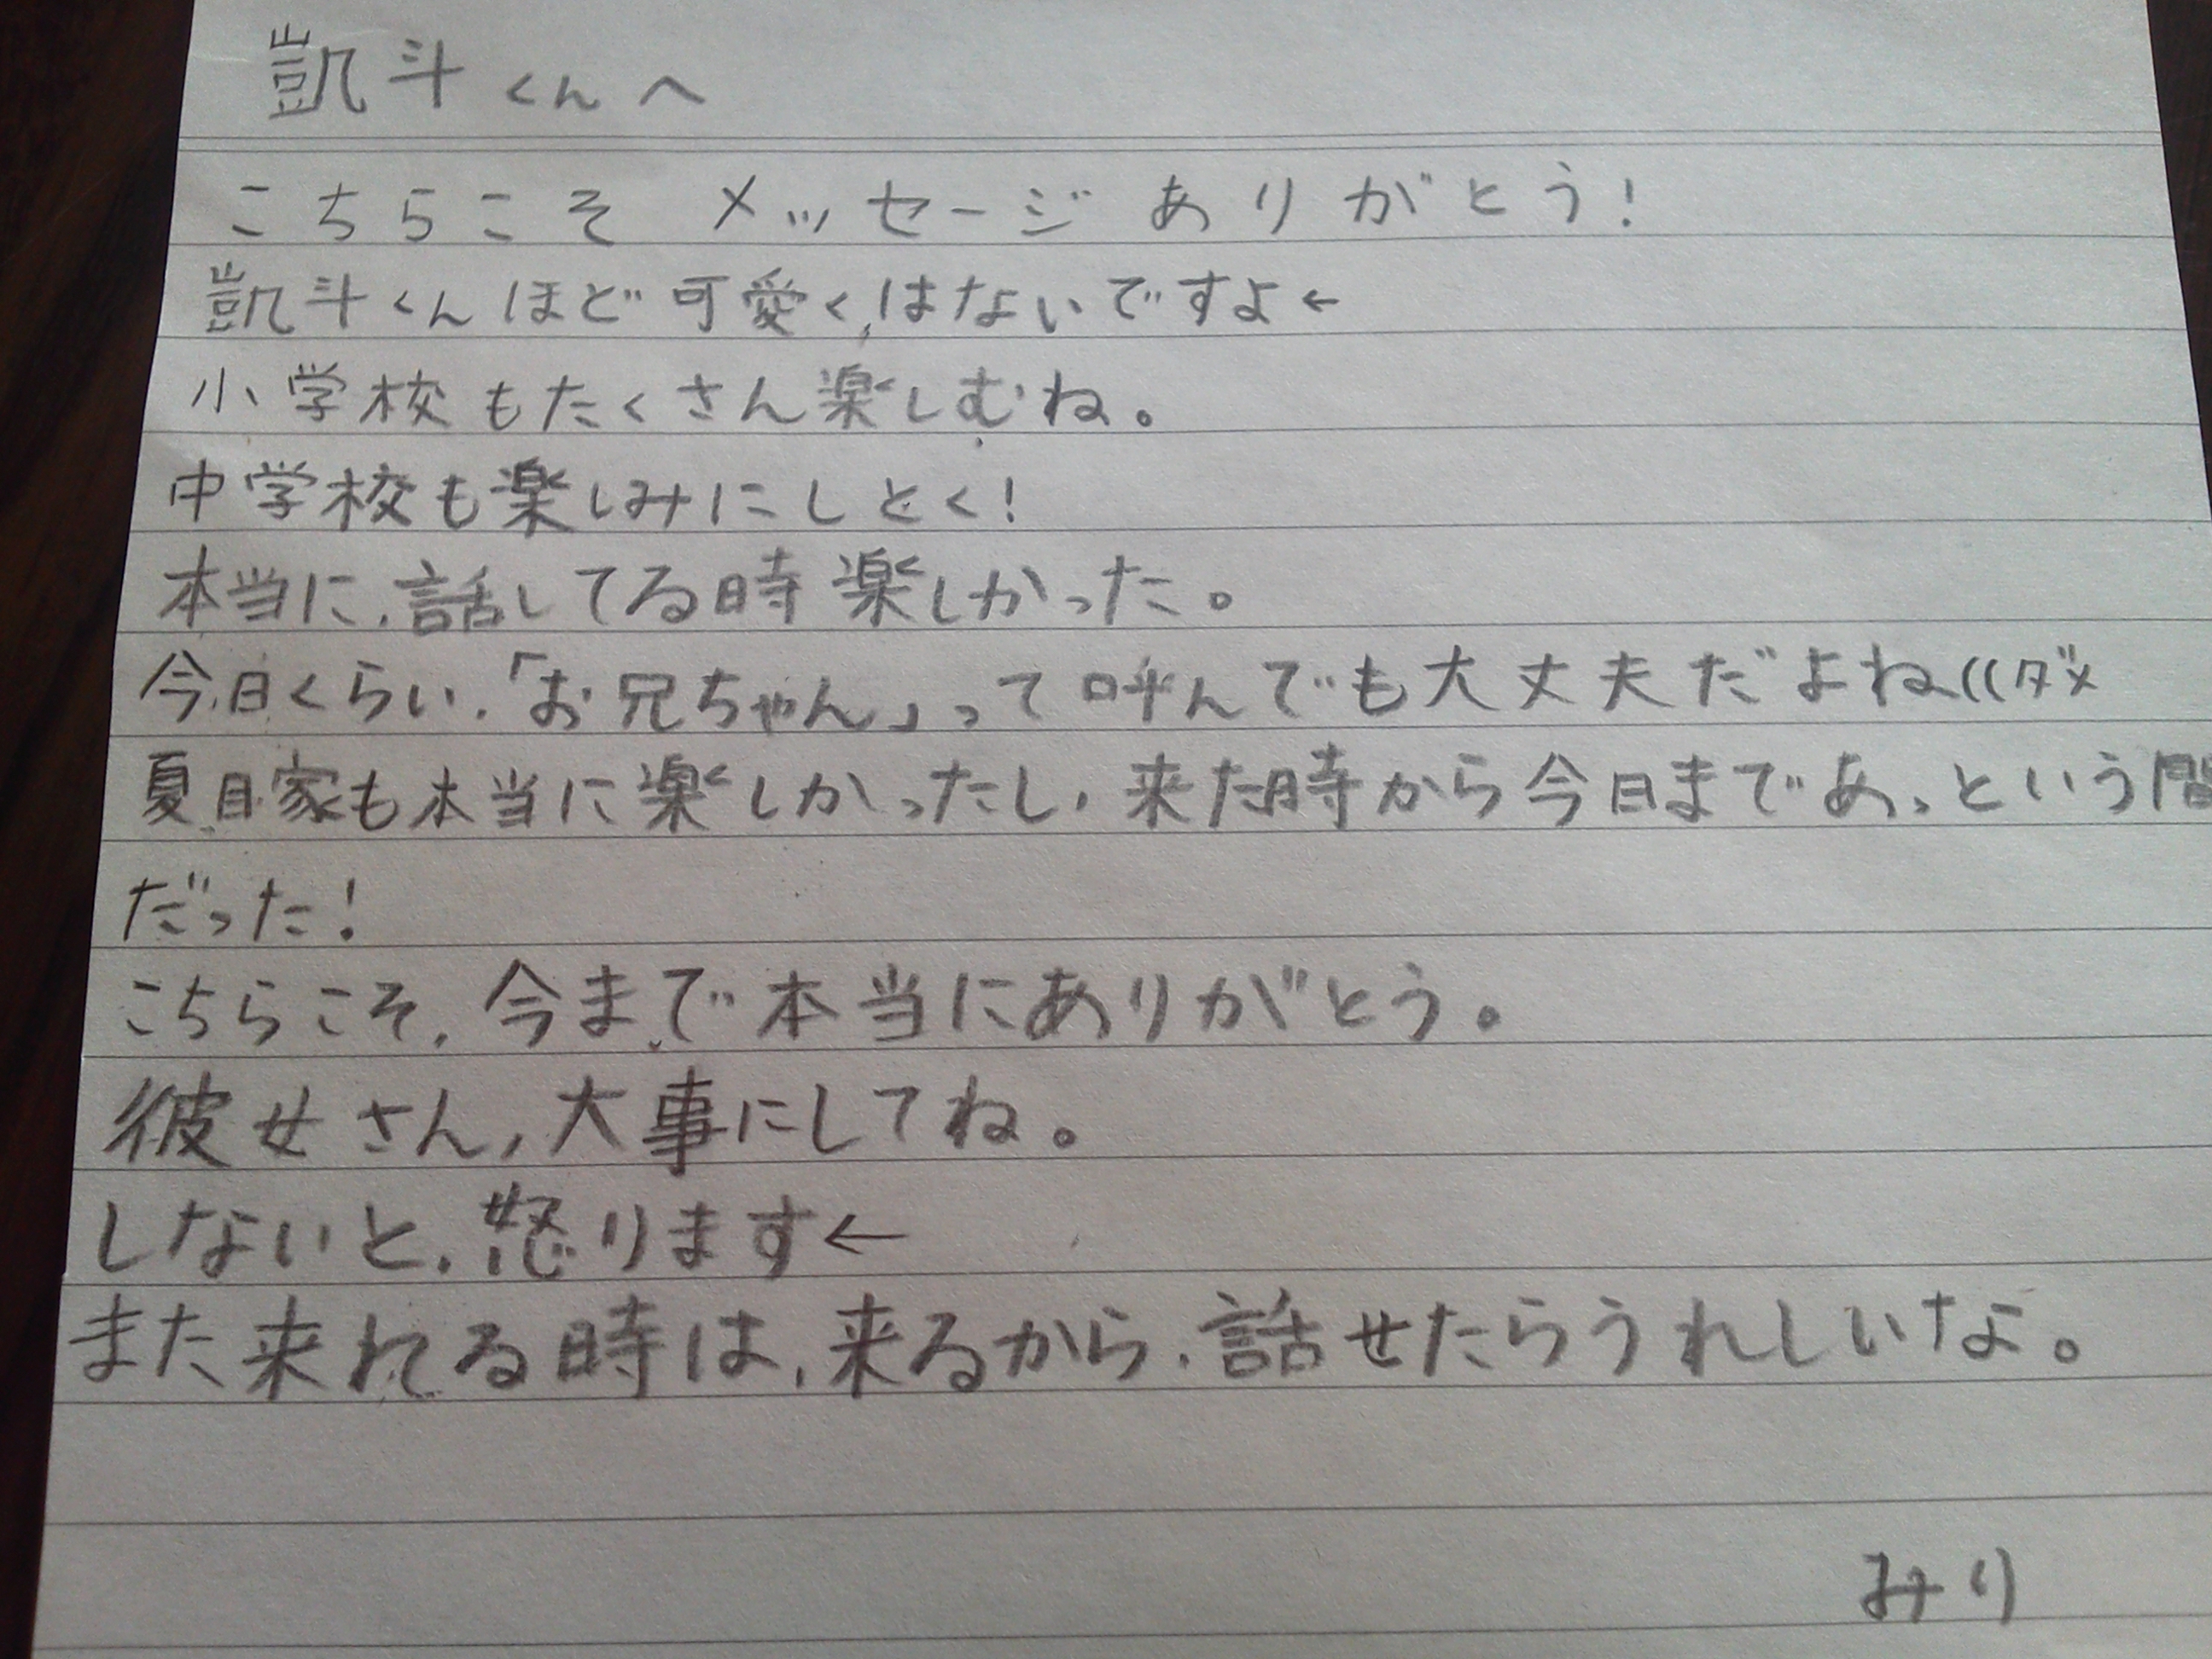 凱斗くんへ
こちらこそ メッセージ ありがとう!
凱斗くんほど可愛くはないですよ←
小学校もたくさん楽しむね。
中学校も楽しみにしとく!
本当に、話してる時楽しかった。
今日くらい、「お兄ちゃん」って呼んでも大丈夫だよね((ダメ
夏目家も本当に楽しかったし、来た時から今日まであっという間
だった!
こちらこそ、今まで本当にありがとう。
彼女さん、大事にしてね。
しないと、怒ります←
また来れる時は、来るから、話せたらうれしいな。
みり